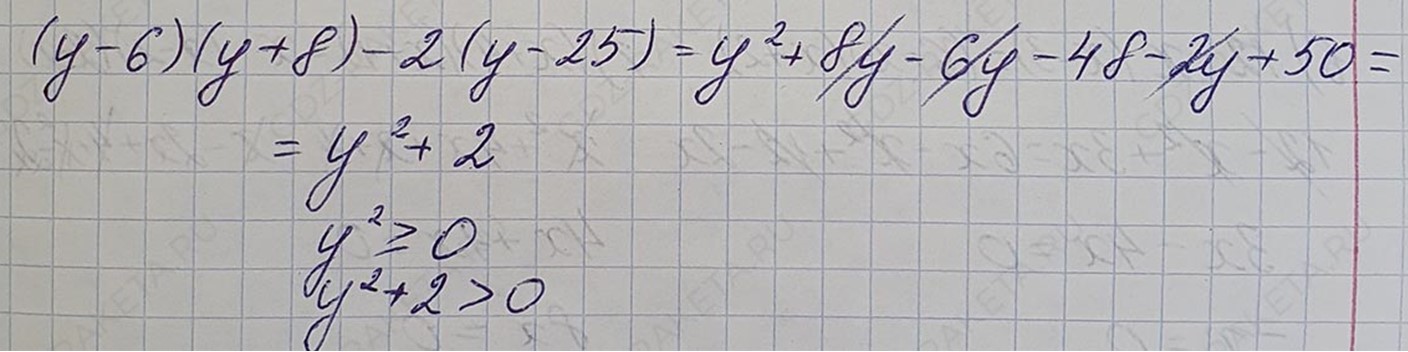 (y-6)(y+8)-2(y-25)=y²+8y-6y-48-2y+50=
=y²+2
y²≥0
y²+2>0